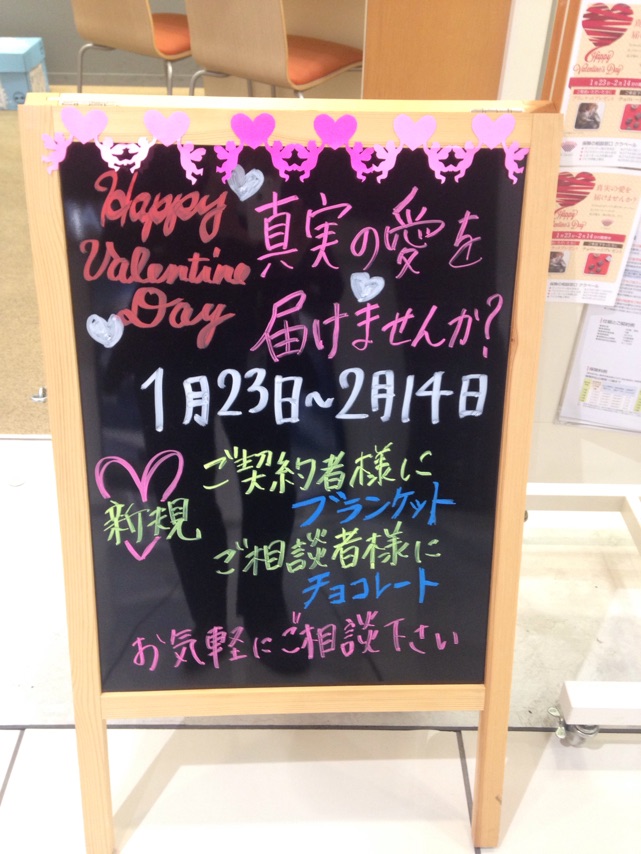 Happy
Valentine
Day
真実の愛を
届けませんか?
1月23日~2月14日
新規
ご契約者様に
ブランケット
ご相談者様に
チョコレート
お気軽にご相談下さい
Happy
Valentine's Day
1月23日~2月14日
真実の愛を
届けませんか?
1月23日~2月14日